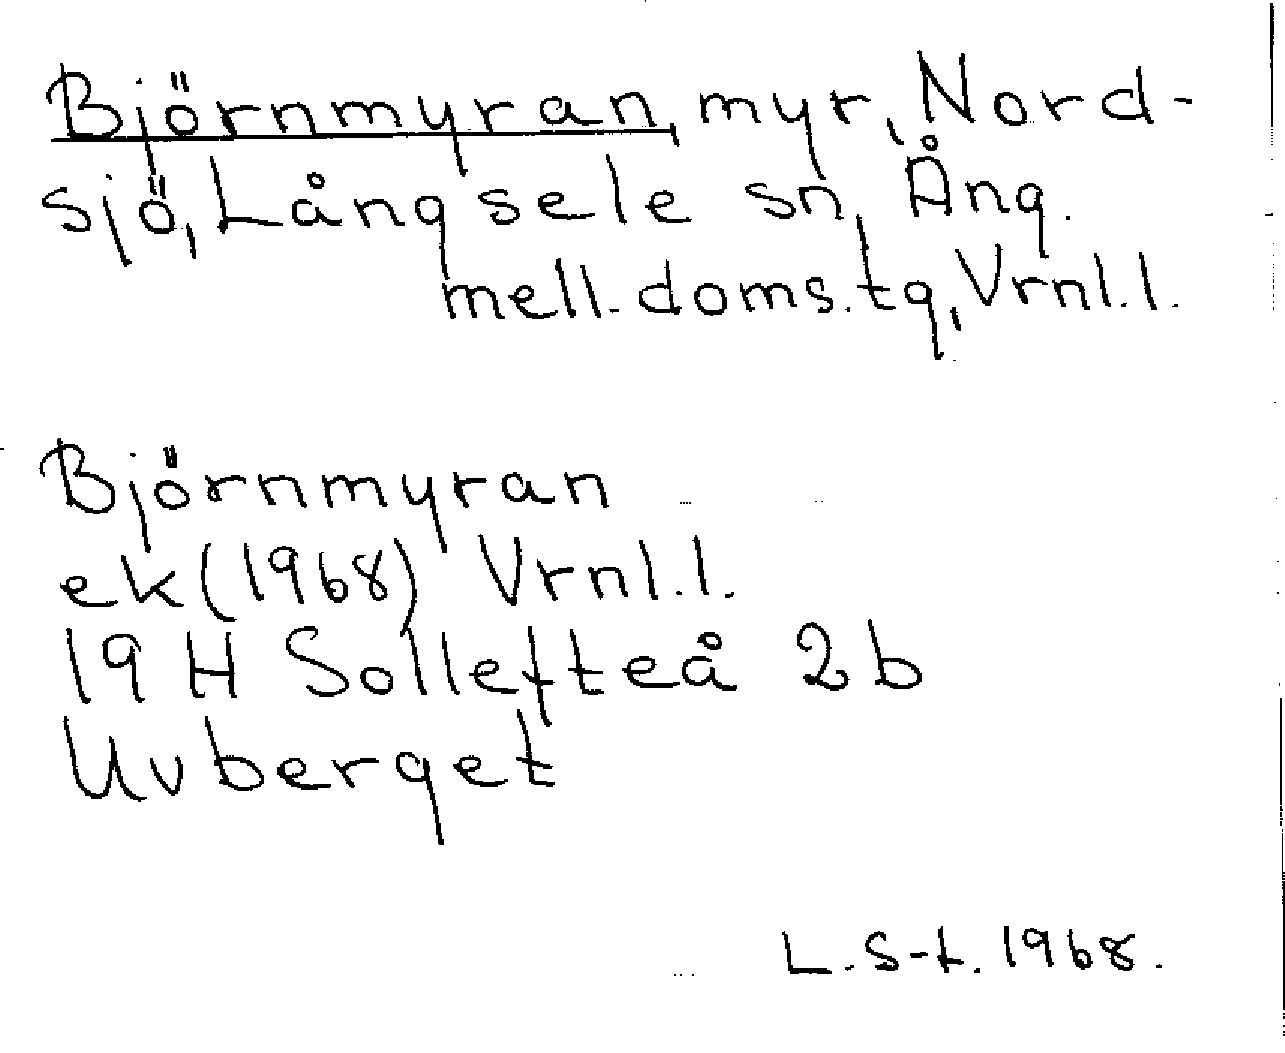 Björnmyran, myr, Nord-
sjö, Långsele sn, Ång.
mell. doms. tg, Vrnl. l.
Björnmyran
ek (1968) Vrnl. l.
19 H Sollefteå 2b
Uvberget
L. S-t. 1968.